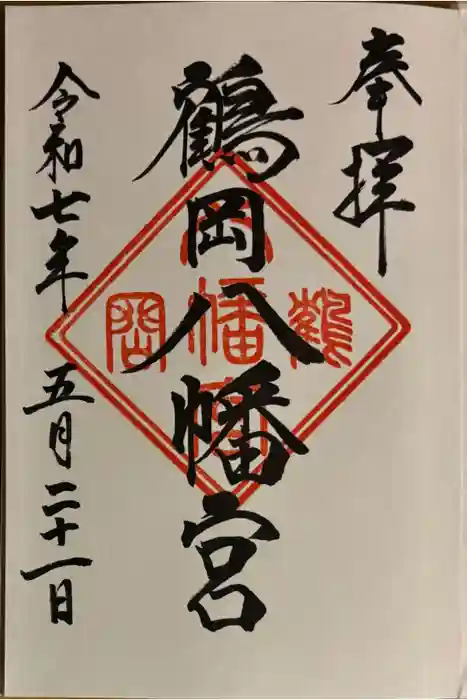 奉拝
鶴岡八幡宮
令和七年五月二十一日